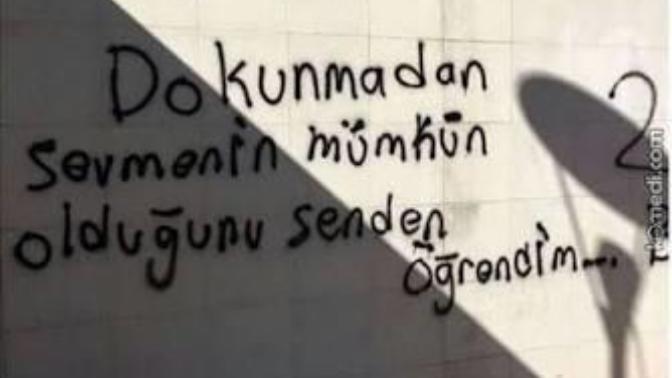 Dokunmadan
sevmenin mümkün
olduğunu senden
öğrendim....
2
komedi.com